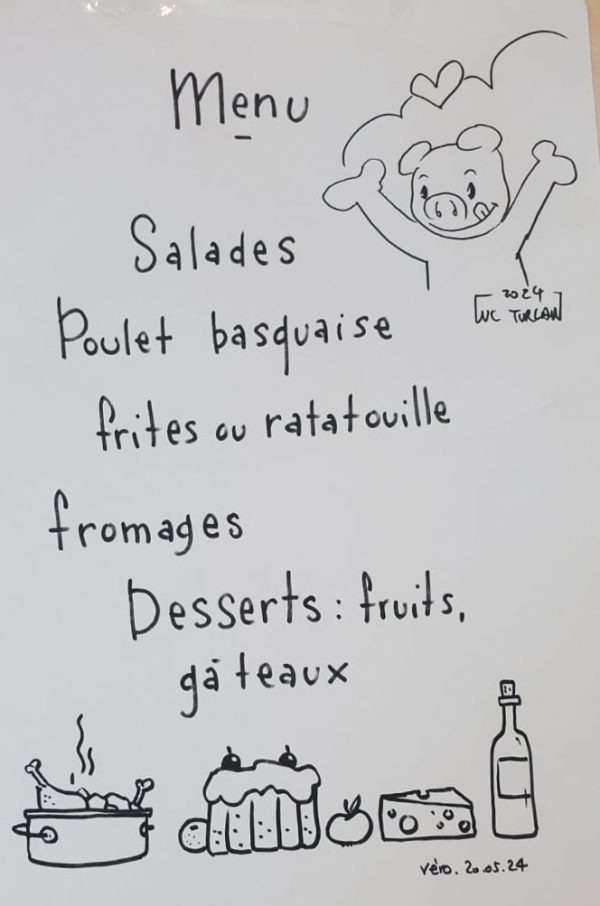 Menu
2024
LUC TURLAN
Salades
Poulet basquaise
frites ou ratatouille
fromages
Desserts : fruits,
gâteaux
Véro. 20.05.24